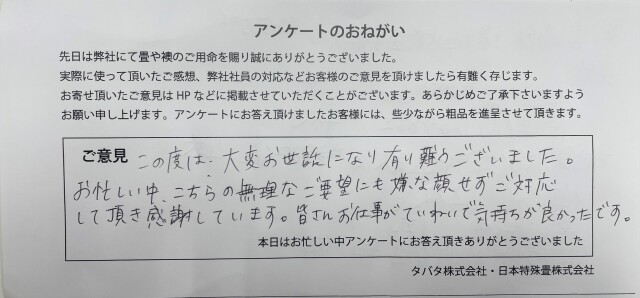 アンケートのおねがい
先日は弊社にて畳や襖のご用命を賜り誠にありがとうございました。
実際に使って頂いたご感想、弊社社員の対応などお客様のご意見を頂けましたら有難く存じます。
お寄せ頂いたご意見は HP などに掲載させていただくことがございます。あらかじめご了承下さいますよう
お願い申し上げます。アンケートにお答え頂けましたお客様には、些少ながら粗品を進呈させて頂きます。
ご意見 この度は、大変お世話になり有り難うございました。
お忙しい中、こちらの無理なご要望にも嫌な顔せずご対応
して頂き感謝しています。皆さんお仕事がていねいで気持ちが良かったです。
本日はお忙しい中アンケートにお答え頂きありがとうございました
タバタ株式会社・日本特殊畳株式会社